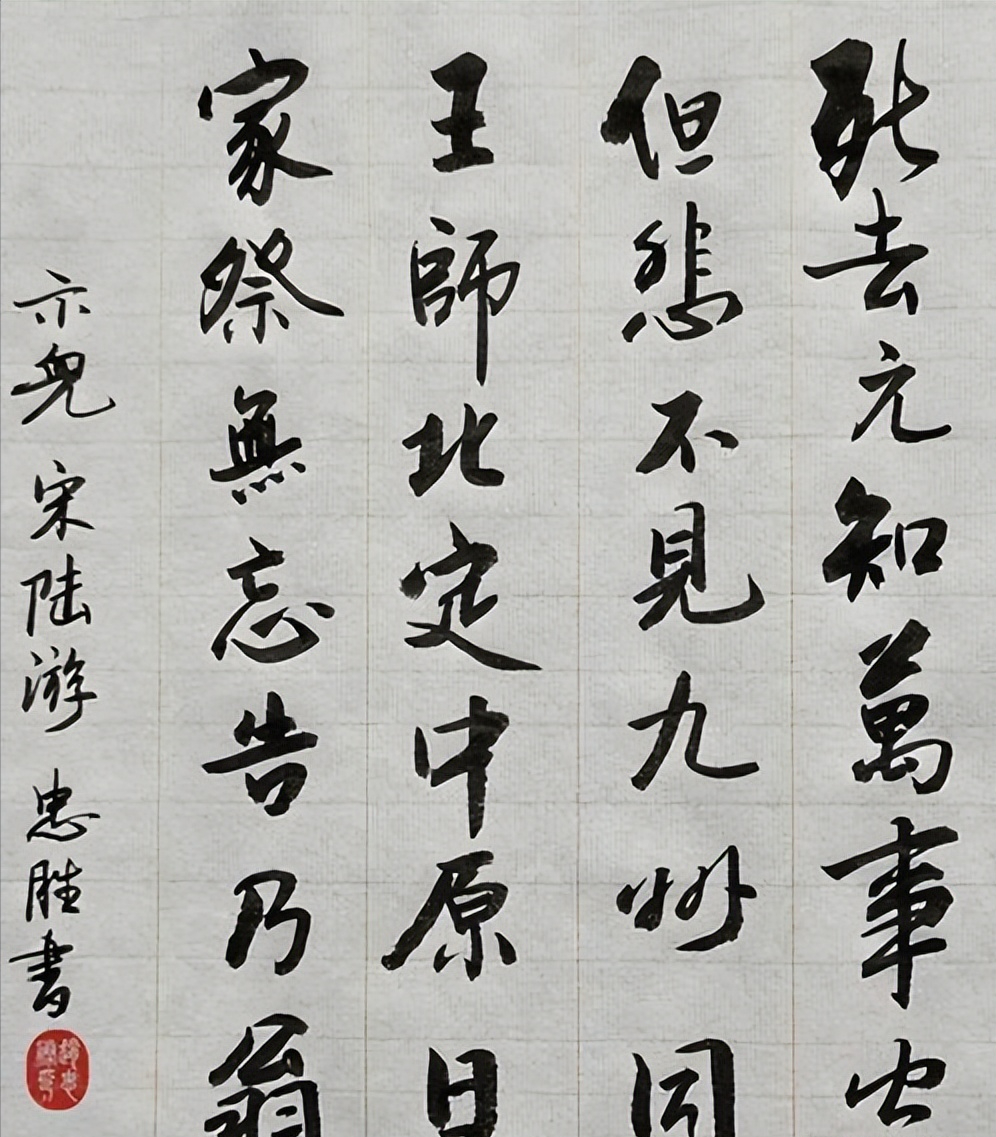 死去元知萬事空
但悲不見九州同
王師北定中原日
家祭無忘告乃翁
示兒 宋 陆游 忠胜書